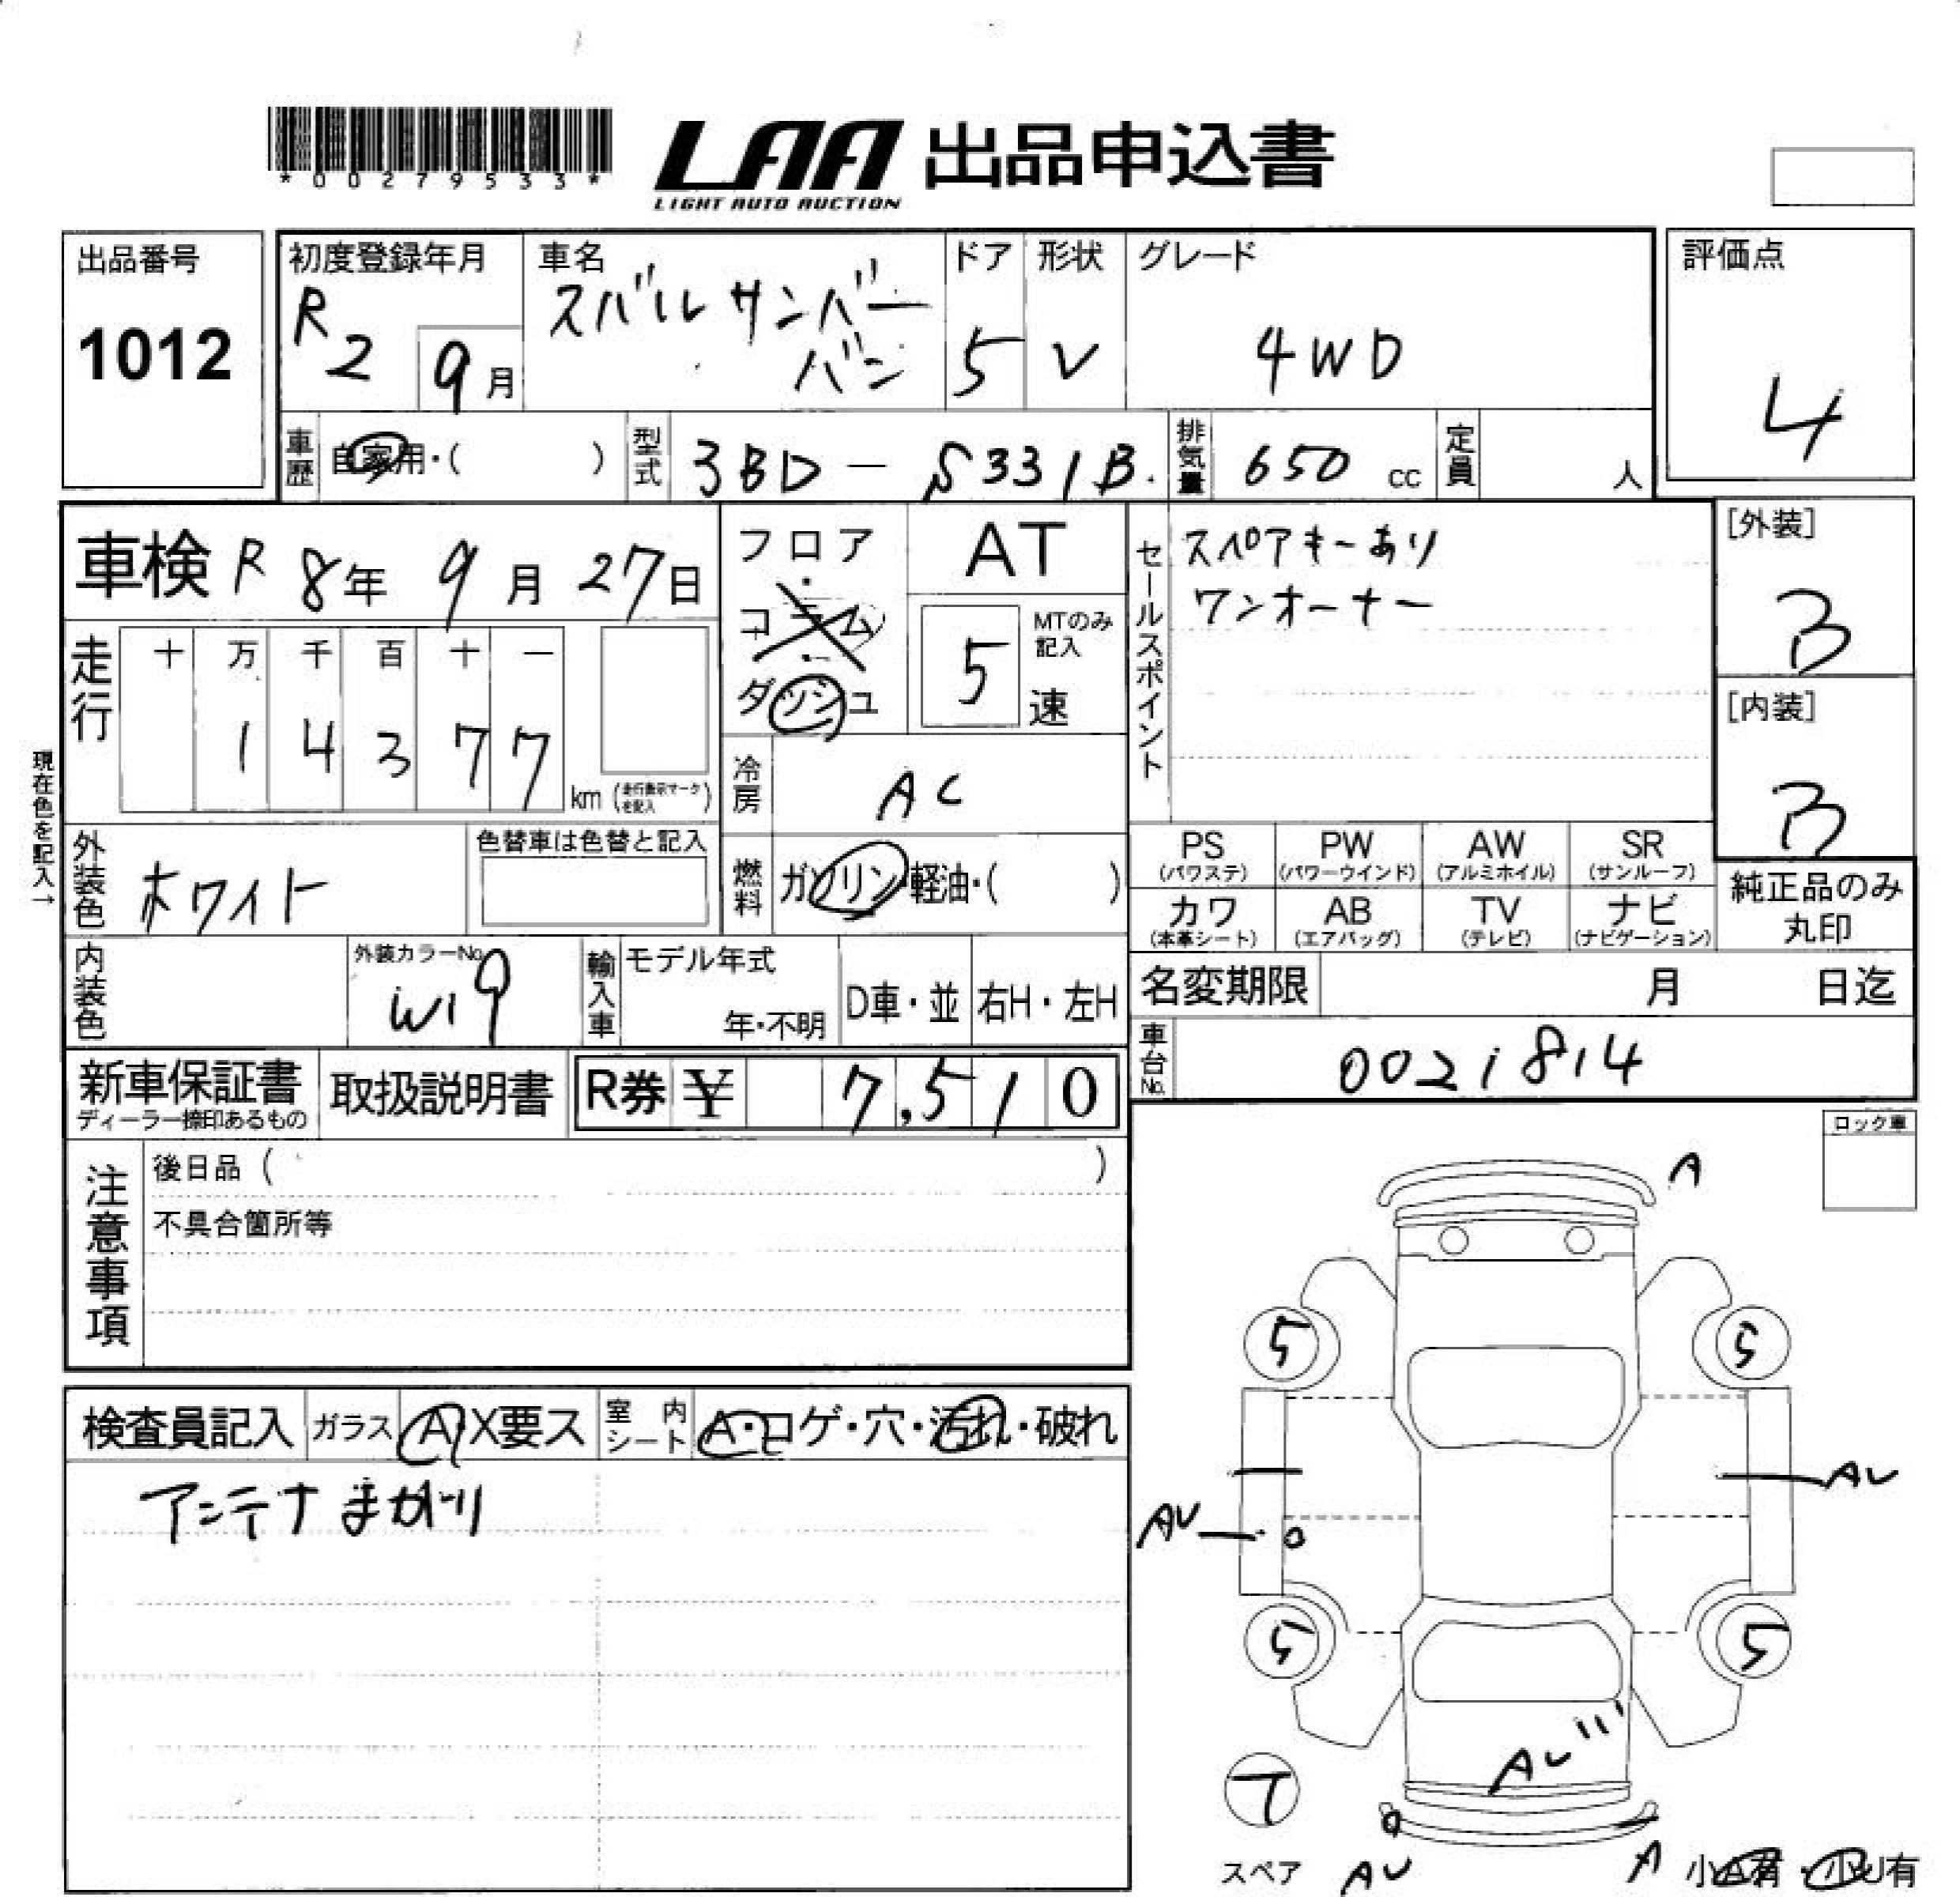 *00279533*
LAA 出品申込書
LIGHT AUTO AUCTION
出品番号
1012
初度登録年月
R2 9月
車名
スバルサンバー
バン
ドア
5
形状
V
グレード
4WD
評価点
4
車歴
自家用・( )
型式
3BD-S331B
排気量
650 cc
定員
人
車検 R 8年 9月 27日
走行
十 万 千 百 十 一
1 4 3 7 7
km (走行表示マークを記入)
フロア
・
コラム
・
ダッシュ
AT
5
MTのみ
記入
速
セールスポイント
スペアキーあり
ワンオーナー
[外装]
B
[内装]
B
現在色を記入→
外装色
ホワイト
色替車は色替と記入
冷房
AC
燃料
ガソリン・軽油・( )
PS
(パワステ)
PW
(パワーウインド)
AW
(アルミホイル)
SR
(サンルーフ)
カワ
(本革シート)
AB
(エアバッグ)
TV
(テレビ)
ナビ
(ナビゲーション)
純正品のみ
丸印
内装色
外装カラーNo.
W19
輸入車
モデル年式
年・不明
D車・並
右H・左H
名変期限
月 日迄
車台No.
0021814
新車保証書
ディーラー捺印あるもの
取扱説明書
R券 ¥ 7,510
ロック車
注意事項
後日品 ( )
不具合箇所等
検査員記入
ガラス
A・X要ス
室内
シート
A・コゲ・穴・汚れ・破れ
アンテナまがり
A
5
5
AU
AU
5
5
AU
T
スペア
AU
A
小A有・小U有